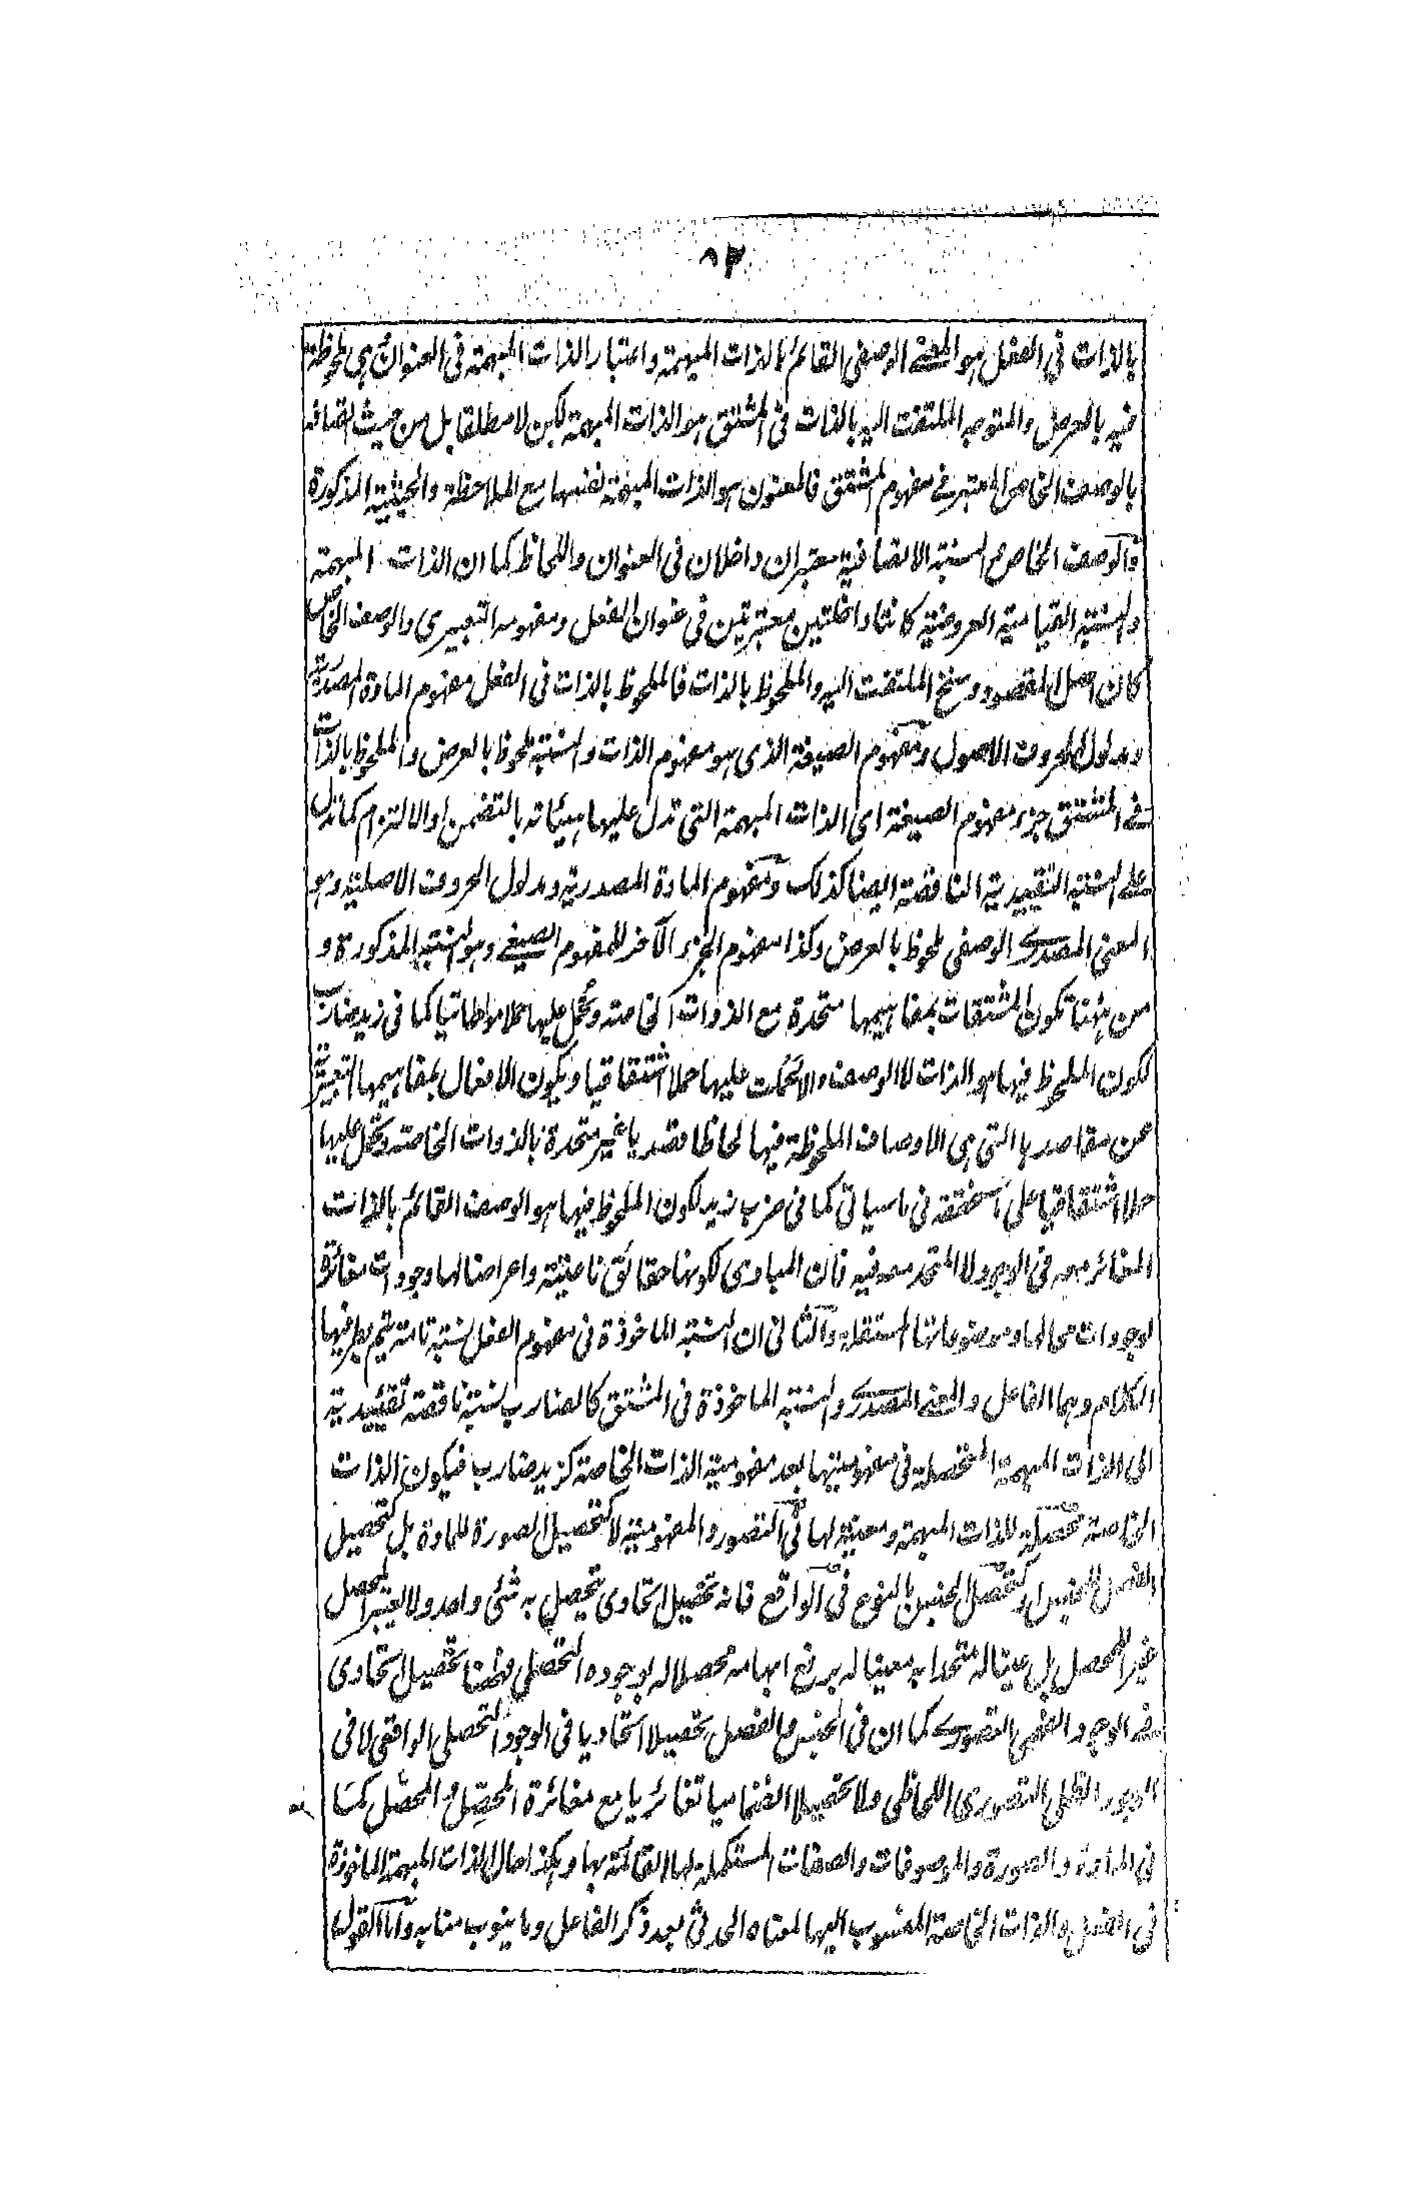 ٨٣
بالذات في الفعل هو المعنى الوصفي القائم بالذات المبهمة واعتبار الذات المبهمة في العنوان هي ملحوظة
فيه بالعرض والمتوجه الملتفت اليه بالذات في المشتق هو الذات المبهمة لكن لا مطلقا بل من حيث اتصافه
بالوصف الخاص المعتبر في مفهوم المشتق فالمعنون هو الذات المبهمة نفسها مع الملاحظة والحيثية المذكورة
والوصف الخاص والنسبة الاتصافية معتبران داخلان في العنوان واللحاظ كما ان الذات المبهمة
والنسبة القيامية العروضية كانتا داخلتين معتبرتين في عنوان الفعل ومفهومه التعبيري والوصف الخاص
كان اصل المقصود وسنخ الملتفت اليه والملحوظ بالذات فالملحوظ بالذات في الفعل مفهوم المادة المصدرية
ومدلول الحروف الاصول ومفهوم الصيغة الذي هو مفهوم الذات والنسبة ملحوظ بالعرض والملحوظ بالذات
في المشتق جزء مفهوم الصيغة اى الذات المبهمة التي تدل عليها هيئاته بالتضمن او الالتزام كما تدل
على النسبة التقييدية الناقصة ايضا كذلك ومفهوم المادة المصدرية ومدلول الحروف الاصلية وهو
المعنى المصدري الوصفي ملحوظ بالعرض وكذا مفهوم الجزء الآخر للمفهوم الصيغي وهو النسبة المذكورة و
من ههنا تكون المشتقات بمفاهيمها متحدة مع الذوات الخاصة وتحمل عليها حملا مواطاتيا كما في زيد ضارب
لكون الملحوظ فيها هو الذات لا الوصف والا لحملت عليها حملا اشتقاقيا ويكون الافعال بمفاهيمها التعبيرية
عن مقاصدها التي هي الاوصاف الملحوظة فيها لحاظا قصديا غير متحدة بالذوات الخاصة وتحمل عليها
حملا اشتقاقيا على ما سنحققه فيما سياتي كما في ضرب زيد لكون الملحوظ فيها هو الوصف القائم بالذات
المغائر معه في الوجود لا المتحد معه فيه فان المبادي لكونها حقائق ناعتية واعراضا لها وجودات مغائرة
لوجودات محالها وموضوعاتها المستقلة والثاني ان النسبة الماخوذة في مفهوم الفعل نسبة تامة يتم بطرفيها
الكلام وهما الفاعل والمعنى المصدري والنسبة الماخوذة في المشتق كالضارب نسبة ناقصة تقييدية
الى الذات المبهمة المتحصلة في مفهوميتها بعد مفهومية الذات الخاصة كزيد ضارب فيكون الذات
الخاصة محصلة للذات المبهمة ومعينة لها في التصور والمفهومية لا كتحصيل الصورة للمادة بل كتحصيل
الفصل للجنس او كتحصل الجنس بالنوع في الواقع فانه تحصيل اتحادي يتحصل به شئ واحد ولا يعتبر المحصل
غير المحصل بل عينا له متحدا به معينا له برفع ابهامه محصلا له بوجوده التحصلي فههنا تحصيل اتحادي
في الوجود الذهني التصوري كما ان في الجنس والفصل تحصيلا اتحاديا في الوجود التحصلي الواقعي لا في
الوجود الظلي التصوري اللحاظي ولا تحصيلا انضماميا تغائريا مع مغائرة المحصِّل والمحصَّل كما
في المادة والصورة والموصوفات والصفات المستكملة لها القائمة بها وهكذا حال الذات المبهمة الماخوذة
في الفعل والذات الخاصة المنسوب اليها لمعناه الحدثي بعد ذكر الفاعل وما ينوب منابه واما القول